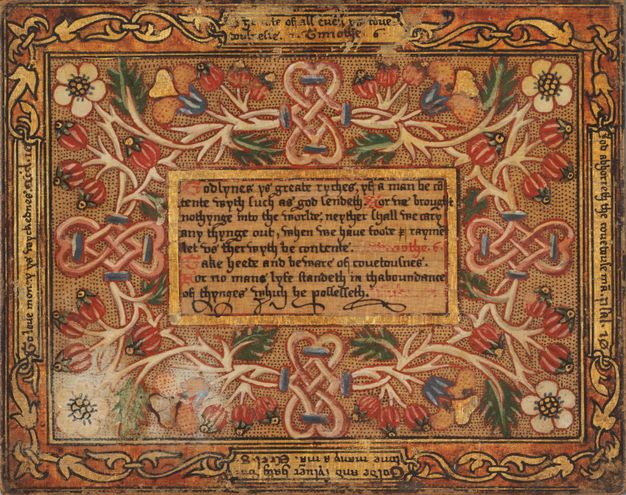 ye rote of all evel, ys cove
Godlynes ys greate ryches, yf a man be cō
tente wyth such as god sendeth For we brought
nothynge into the worlde, neyther shall we cary
any thynge out, when we have foode & raymēt
let us ther wyth be contente. 6
Take heede and beware of covetousnes.
For no mans lyfe standeth in thaboundance
of thynges which he possesseth.
God abhorreth the covetouse
Golde and sylver hath
To love money ys wyckednes